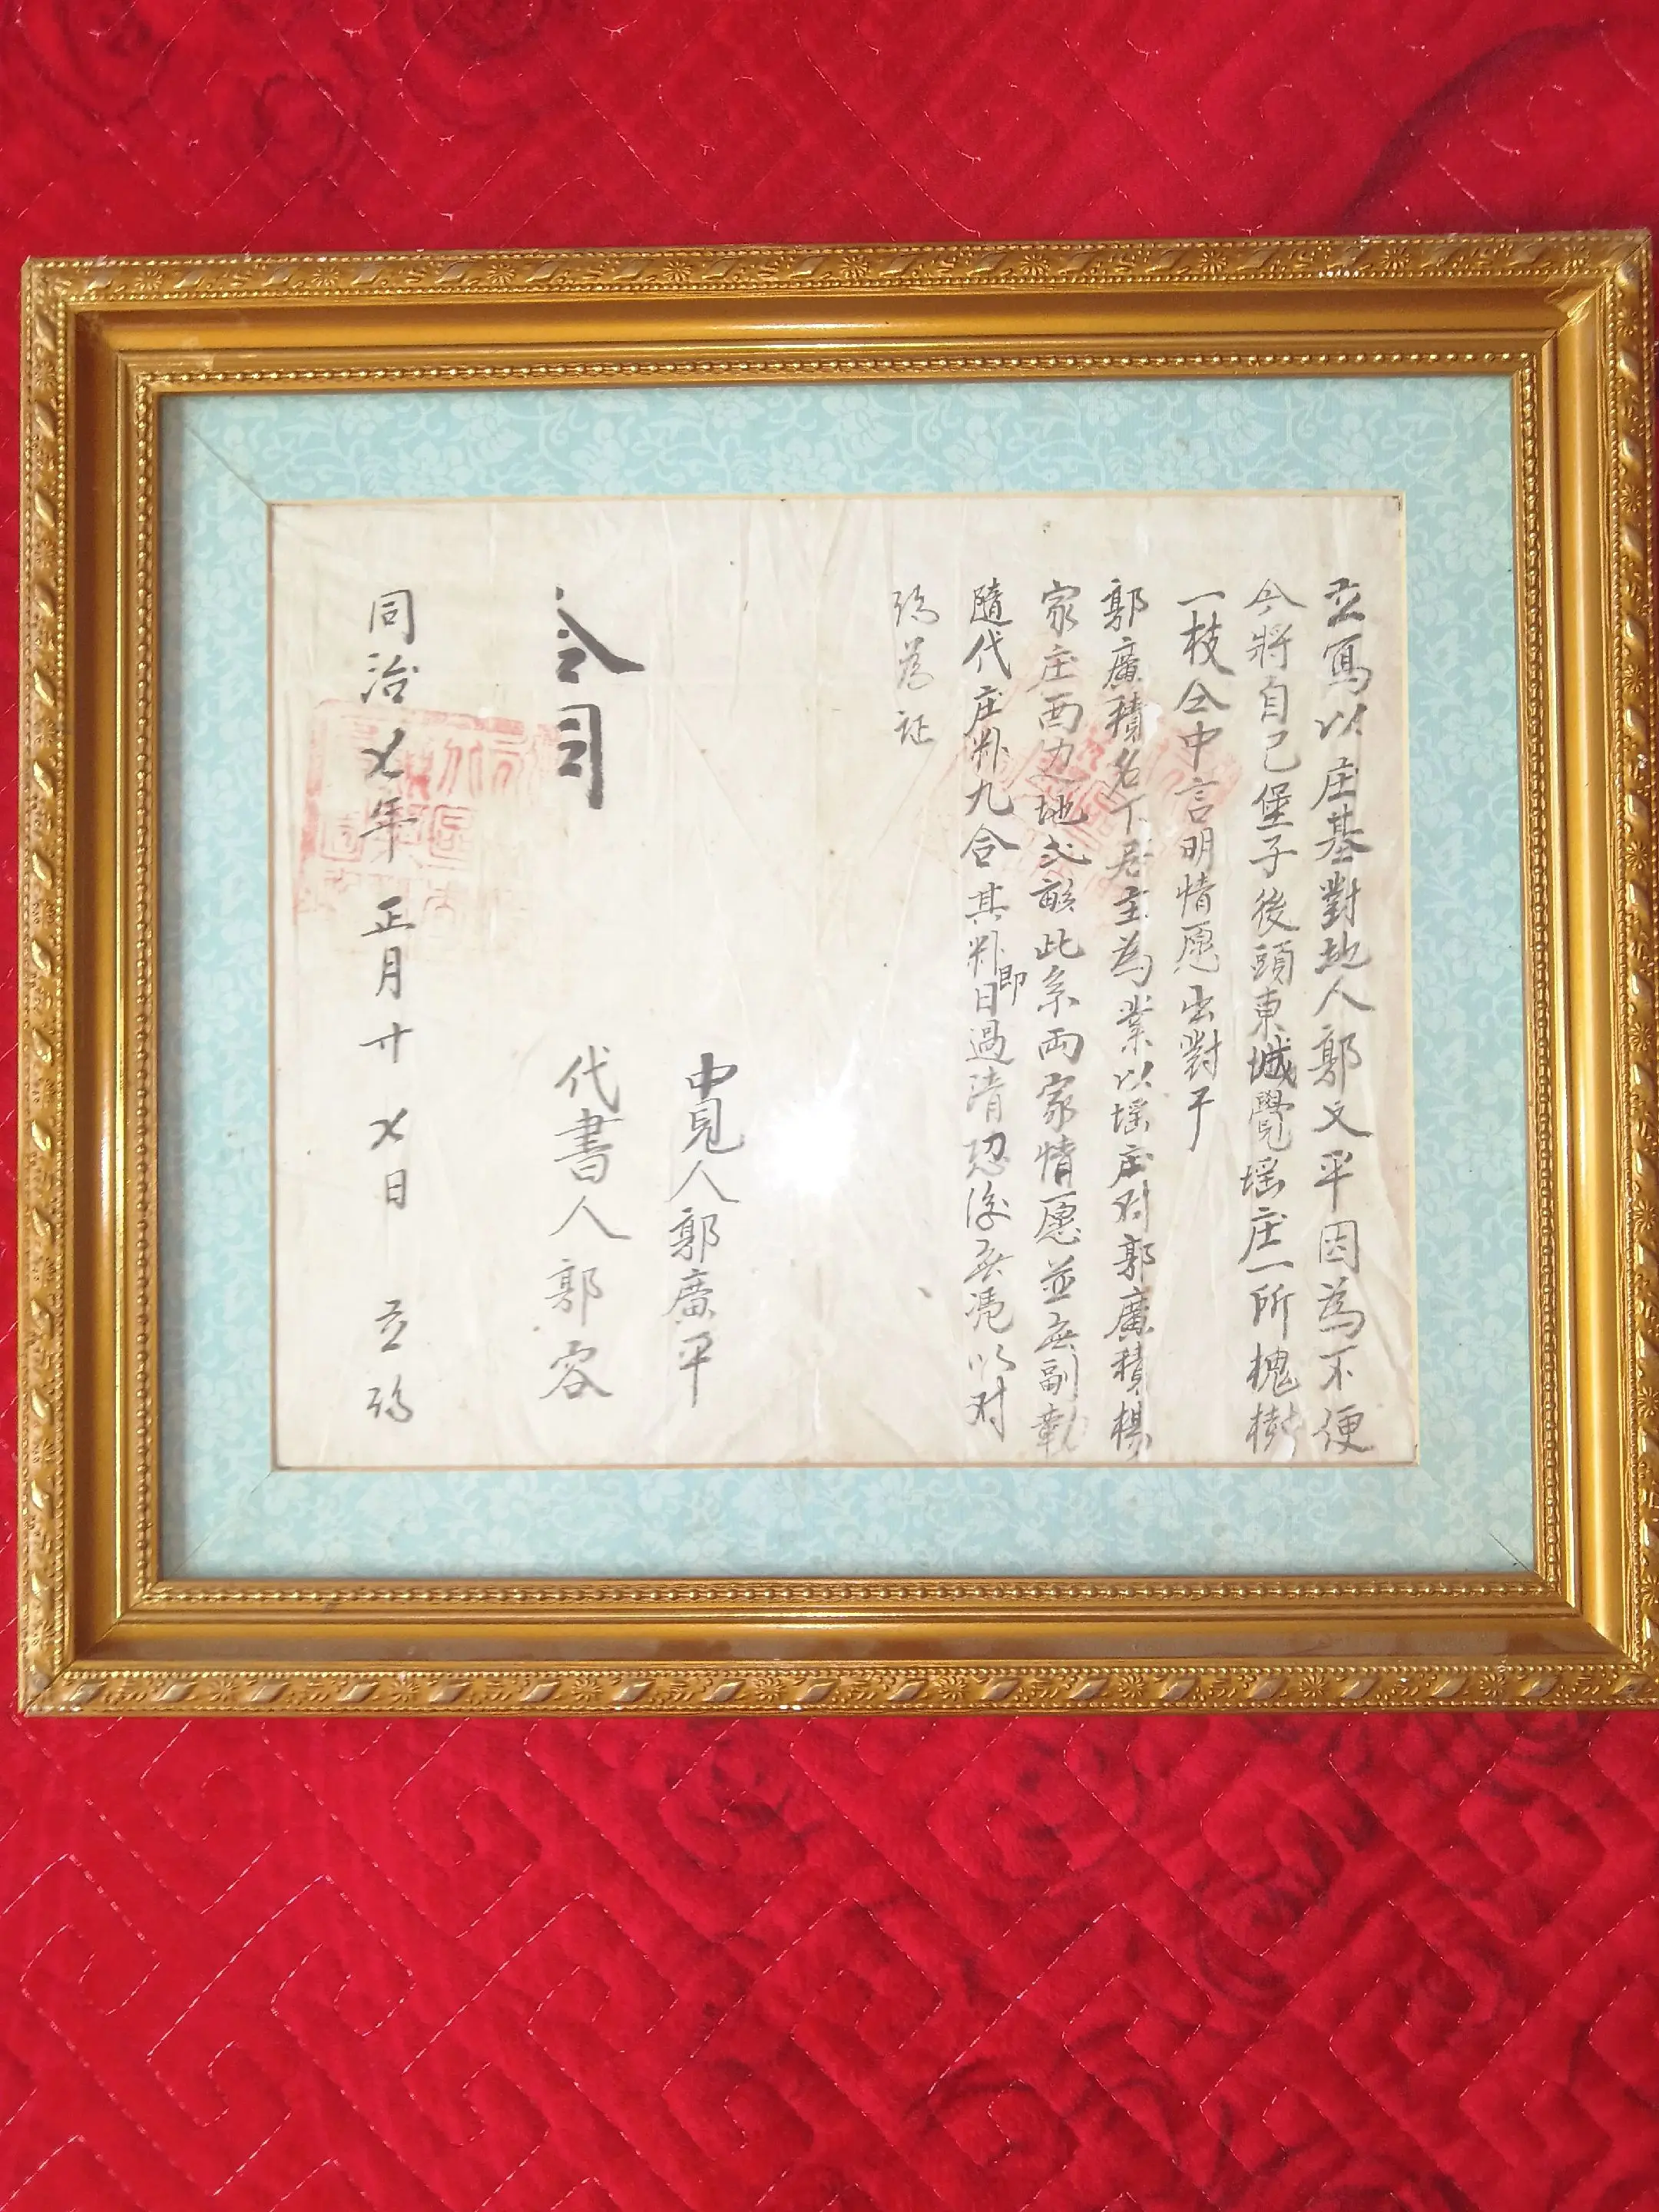 立寫以庄基對地人郭文平因為不便
今將自己堡子後頭東城覺墭庄一所槐樹
一枝仝中言明情愿出對于
郭廣積名下居主為業以墭庄对郭廣積楊
家庄西边地弍畝此系両家情愿並無副勒
隨代庄粆九合其粆即日過清恐後無凴以对
約為证
中見人郭廣平
仝司
代書人郭容
同治乂年正月十乂日立約